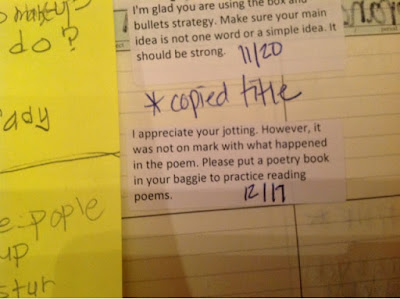 do?
ady
pople
up
I'm glad you are using the box and
bullets strategy. Make sure your main
idea is not one word or a simple idea. It
should be strong. 11/20
*copied title
I appreciate your jotting. However, it
was not on mark with what happened
in the poem. Please put a poetry book
in your baggie to practice reading
poems. 12/17